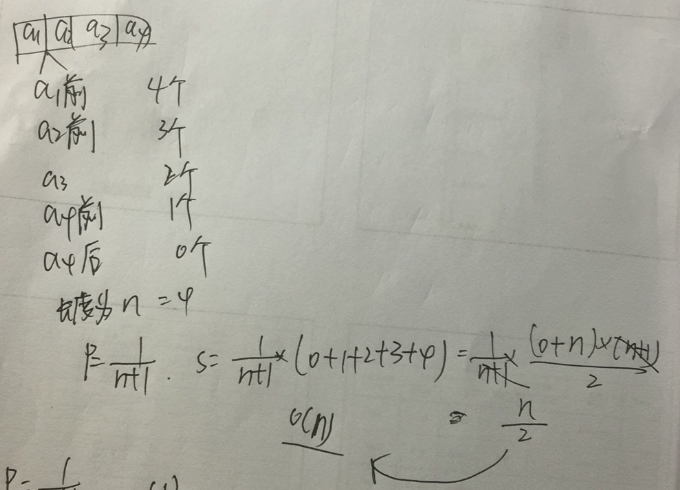 a1 a2 a3 a4
a1前 4个
a2前 3个
a3 2个
a4前 1个
a4后 0个
长度为 n = 4
P = 1/(n+1) . S = 1/(n+1) × (0+1+2+3+4) = 1/(n+1) × (0+n)×(n+1)/2
O(n) = n/2
P = 1